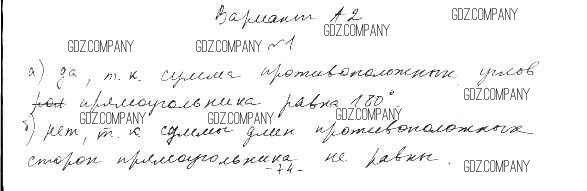 Вариант А2
GDZ.COMPANY
GDZ.COMPANY
GDZ.COMPANY
GDZ.COMPANY
№1
а) да, т.к. сумма противоположных углов
GDZ.COMPANY
прямоугольника равна 180°
GDZ.COMPANY
GDZ.COMPANY
GDZ.COMPANY
б) нет, т.к суммы длин противоположных
сторон прямоугольника не равны.
GDZ.COMPANY
-74-